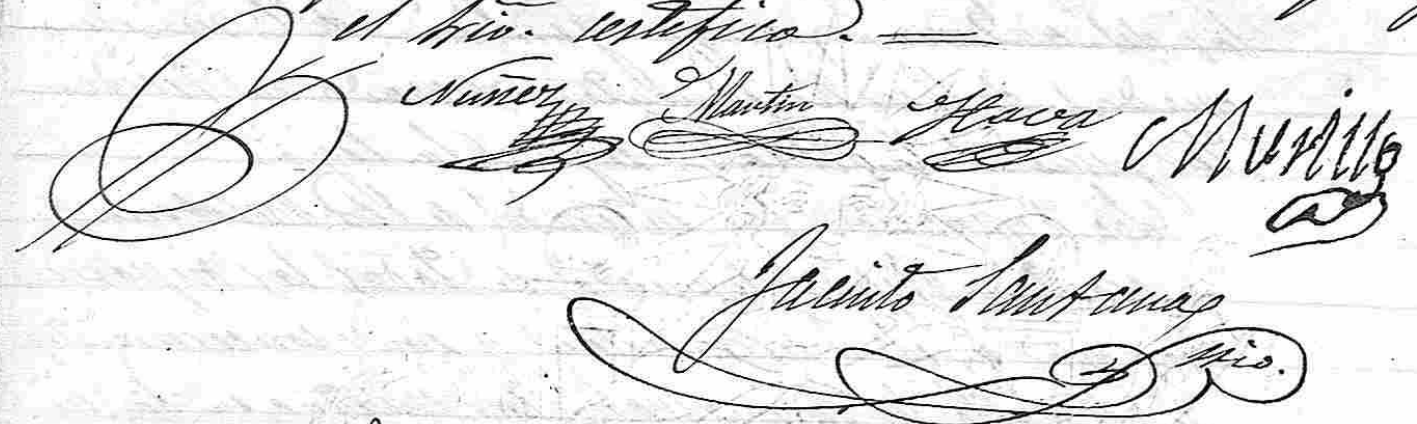 el Srio. certifica. —
Nuñez Martin Nava Murillo
Jacinto Santana
Srio.